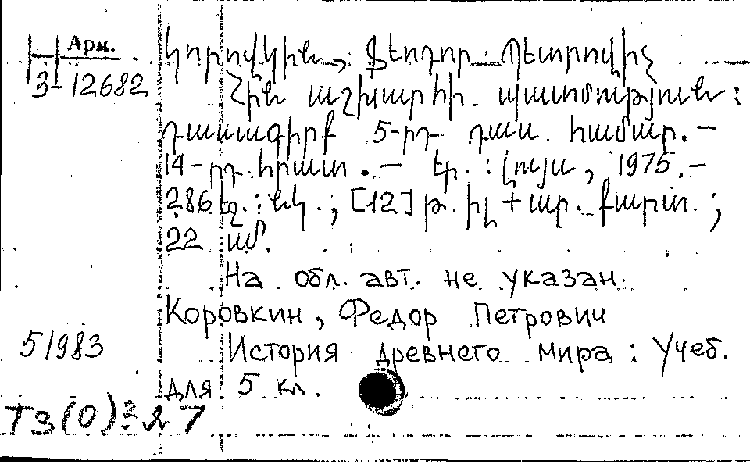 Арм.
3-12682
Կորովկին, Ֆեոդոր Պետրովիչ
Հին աշխարհի պատմություն:
Դասագիրք 5-րդ դաս. համար. –
14-րդ հրատ. – Եր.: Լույս, 1975. –
286 էջ.: նկ.; [12] թ. իլ + առ. քարտ.;
22 սմ.
На обл. авт. не указан.
Коровкин, Федор Петрович
51983
История древнего мира: Учеб.
для 5 кл.
ТЗ(0)3я7